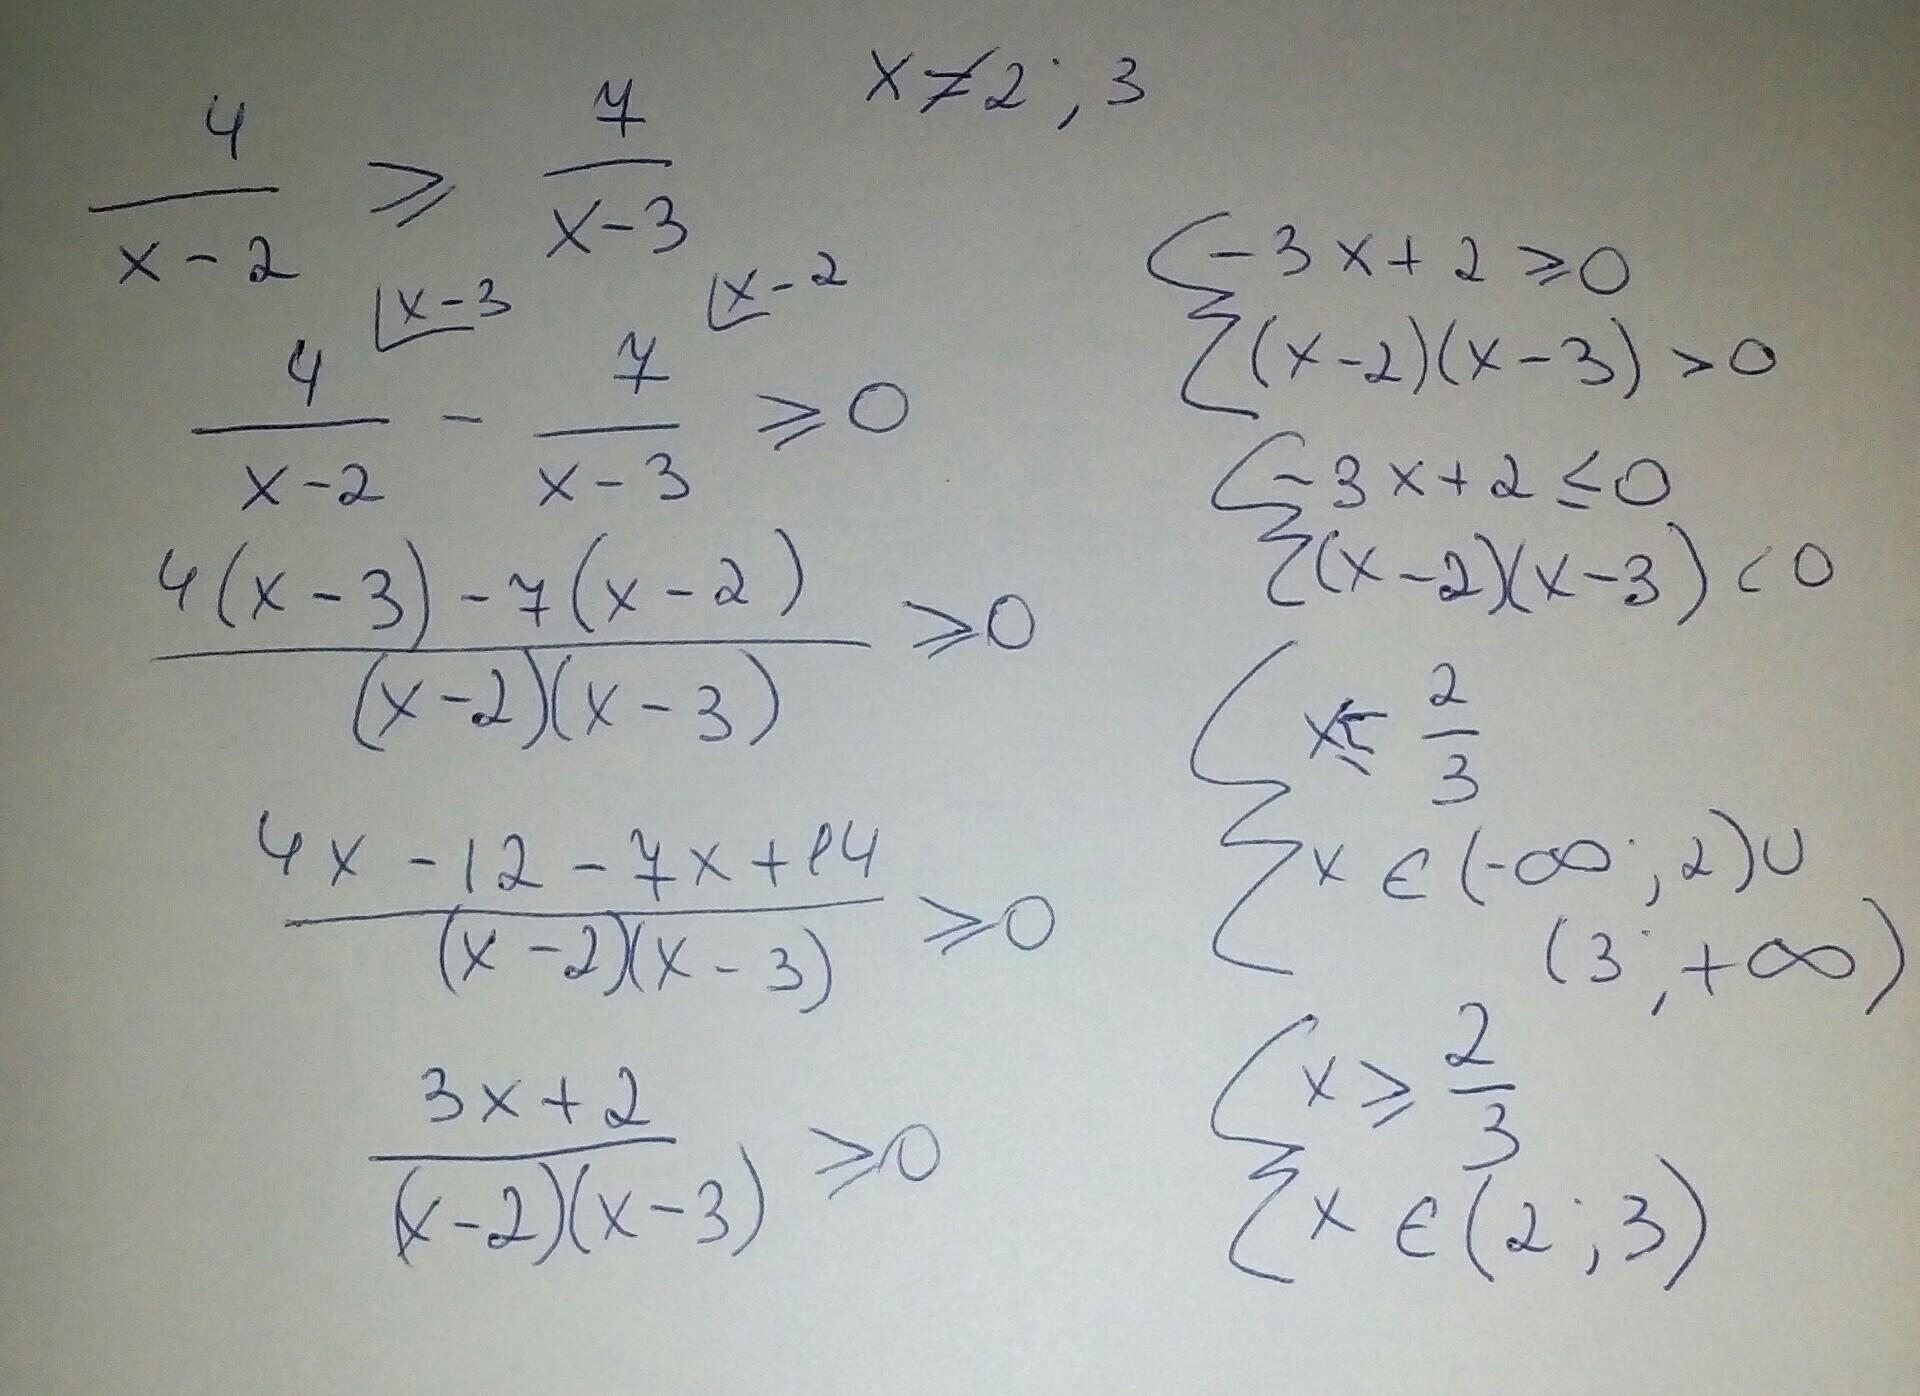 x≠2; 3
4/(x-2) ⩾ 7/(x-3)
4/(x-2) |x-3 - 7/(x-3) |x-2 ⩾0
(4(x-3)-7(x-2))/((x-2)(x-3)) ⩾0
(4x-12-7x+14)/((x-2)(x-3)) ⩾0
(3x+2)/((x-2)(x-3)) ⩾0
{-3x+2⩾0
(x-2)(x-3)>0
{-3x+2≤0
(x-2)(x-3)<0
{x≤ 2/3
x∈(-∞;2)∪
(3;+∞)
{x⩾ 2/3
x∈(2;3)